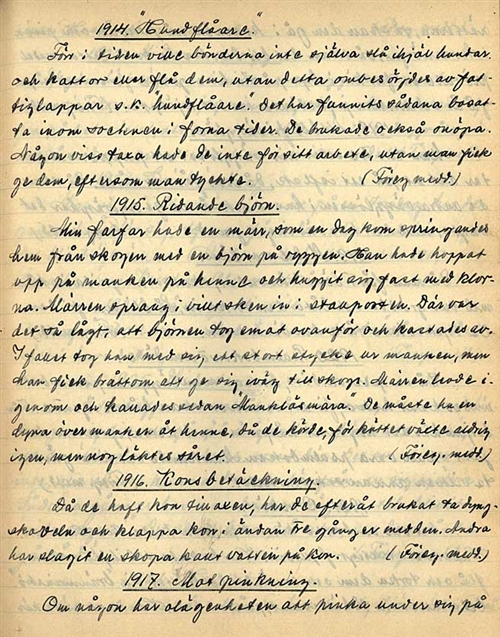 1914. "Hundflåare."
Förr i tiden ville bönderna inte själva slå ihjäl hundar
och kattor eller flå dem, utan detta ombesörjdes av fat-
tiglappar s.k. "hundflåare". Det har funnits sådana bosat-
ta inom socknen i forna tider. De brukade också snöpa.
Någon viss taxa hade de inte för sitt arbete, utan man fick
ge dem, eftersom man tyckte. (Föreg. medd.)
1915. Ridande björn.
Min farfar hade en märr, som en dag kom springandes
hem från skogen med en björn på ryggen. Han hade hoppat
upp på manken på henne och huggit sig fast med klor-
na. Märren sprang i vilt sken in i stallporten. Där var
det så lågt, att björnen tog emot ovanför och kastades av.
I fallet tog han med sig ett stort stycke ur manken, men
han fick bråttom att ge sig iväg till skogs. Märren levde i-
genom och kallades sedan "Manklösmära". De måste ha en
dyna över manken åt henne, då de körde, för köttet växte aldrig
igen, men nog läktes såret. (Föreg. medd.)
1916. Kons betäckning.
Då de haft kon till oxen, har de efteråt brukat ta dyng-
skoveln och klappa kon i ändan tre gånger med den. Andra
har slagit en skopa kallt vatten på kon. (Föreg. medd.)
1917. Mot pinkning.
Om någon har olägenheten att pinka under sig på